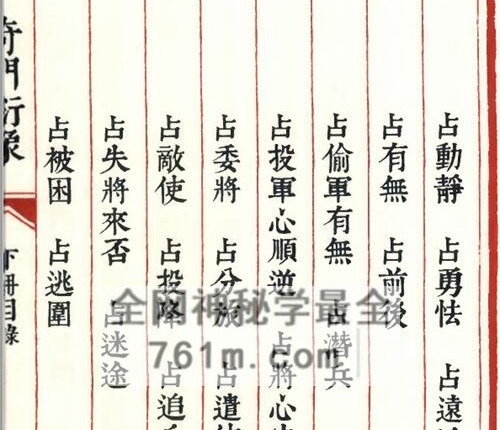 占動靜 占勇怯 占遠
占有無 占前後
占偷軍有無 占潛兵
占投軍心順逆 占將心
占委將 占分 占遣
占敵使 占投降 占追
占失將來否 占迷途
占被困 占逃圍
奇門衍象
下冊目錄
全网神秘学最全
761m.com